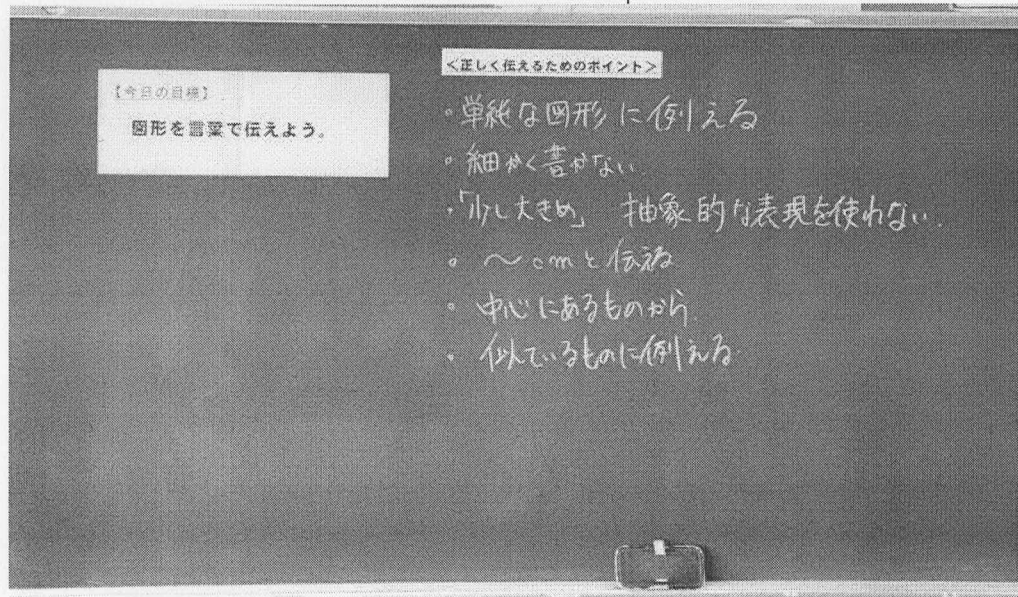 【今日の目標】
図形を言葉で伝えよう。
＜正しく伝えるためのポイント＞
・単純な図形に例える
・細かく書かない
・「少し大きめ」 抽象的な表現を使わない
・～cmと伝える
・中心にあるものから
・似ているものに例える